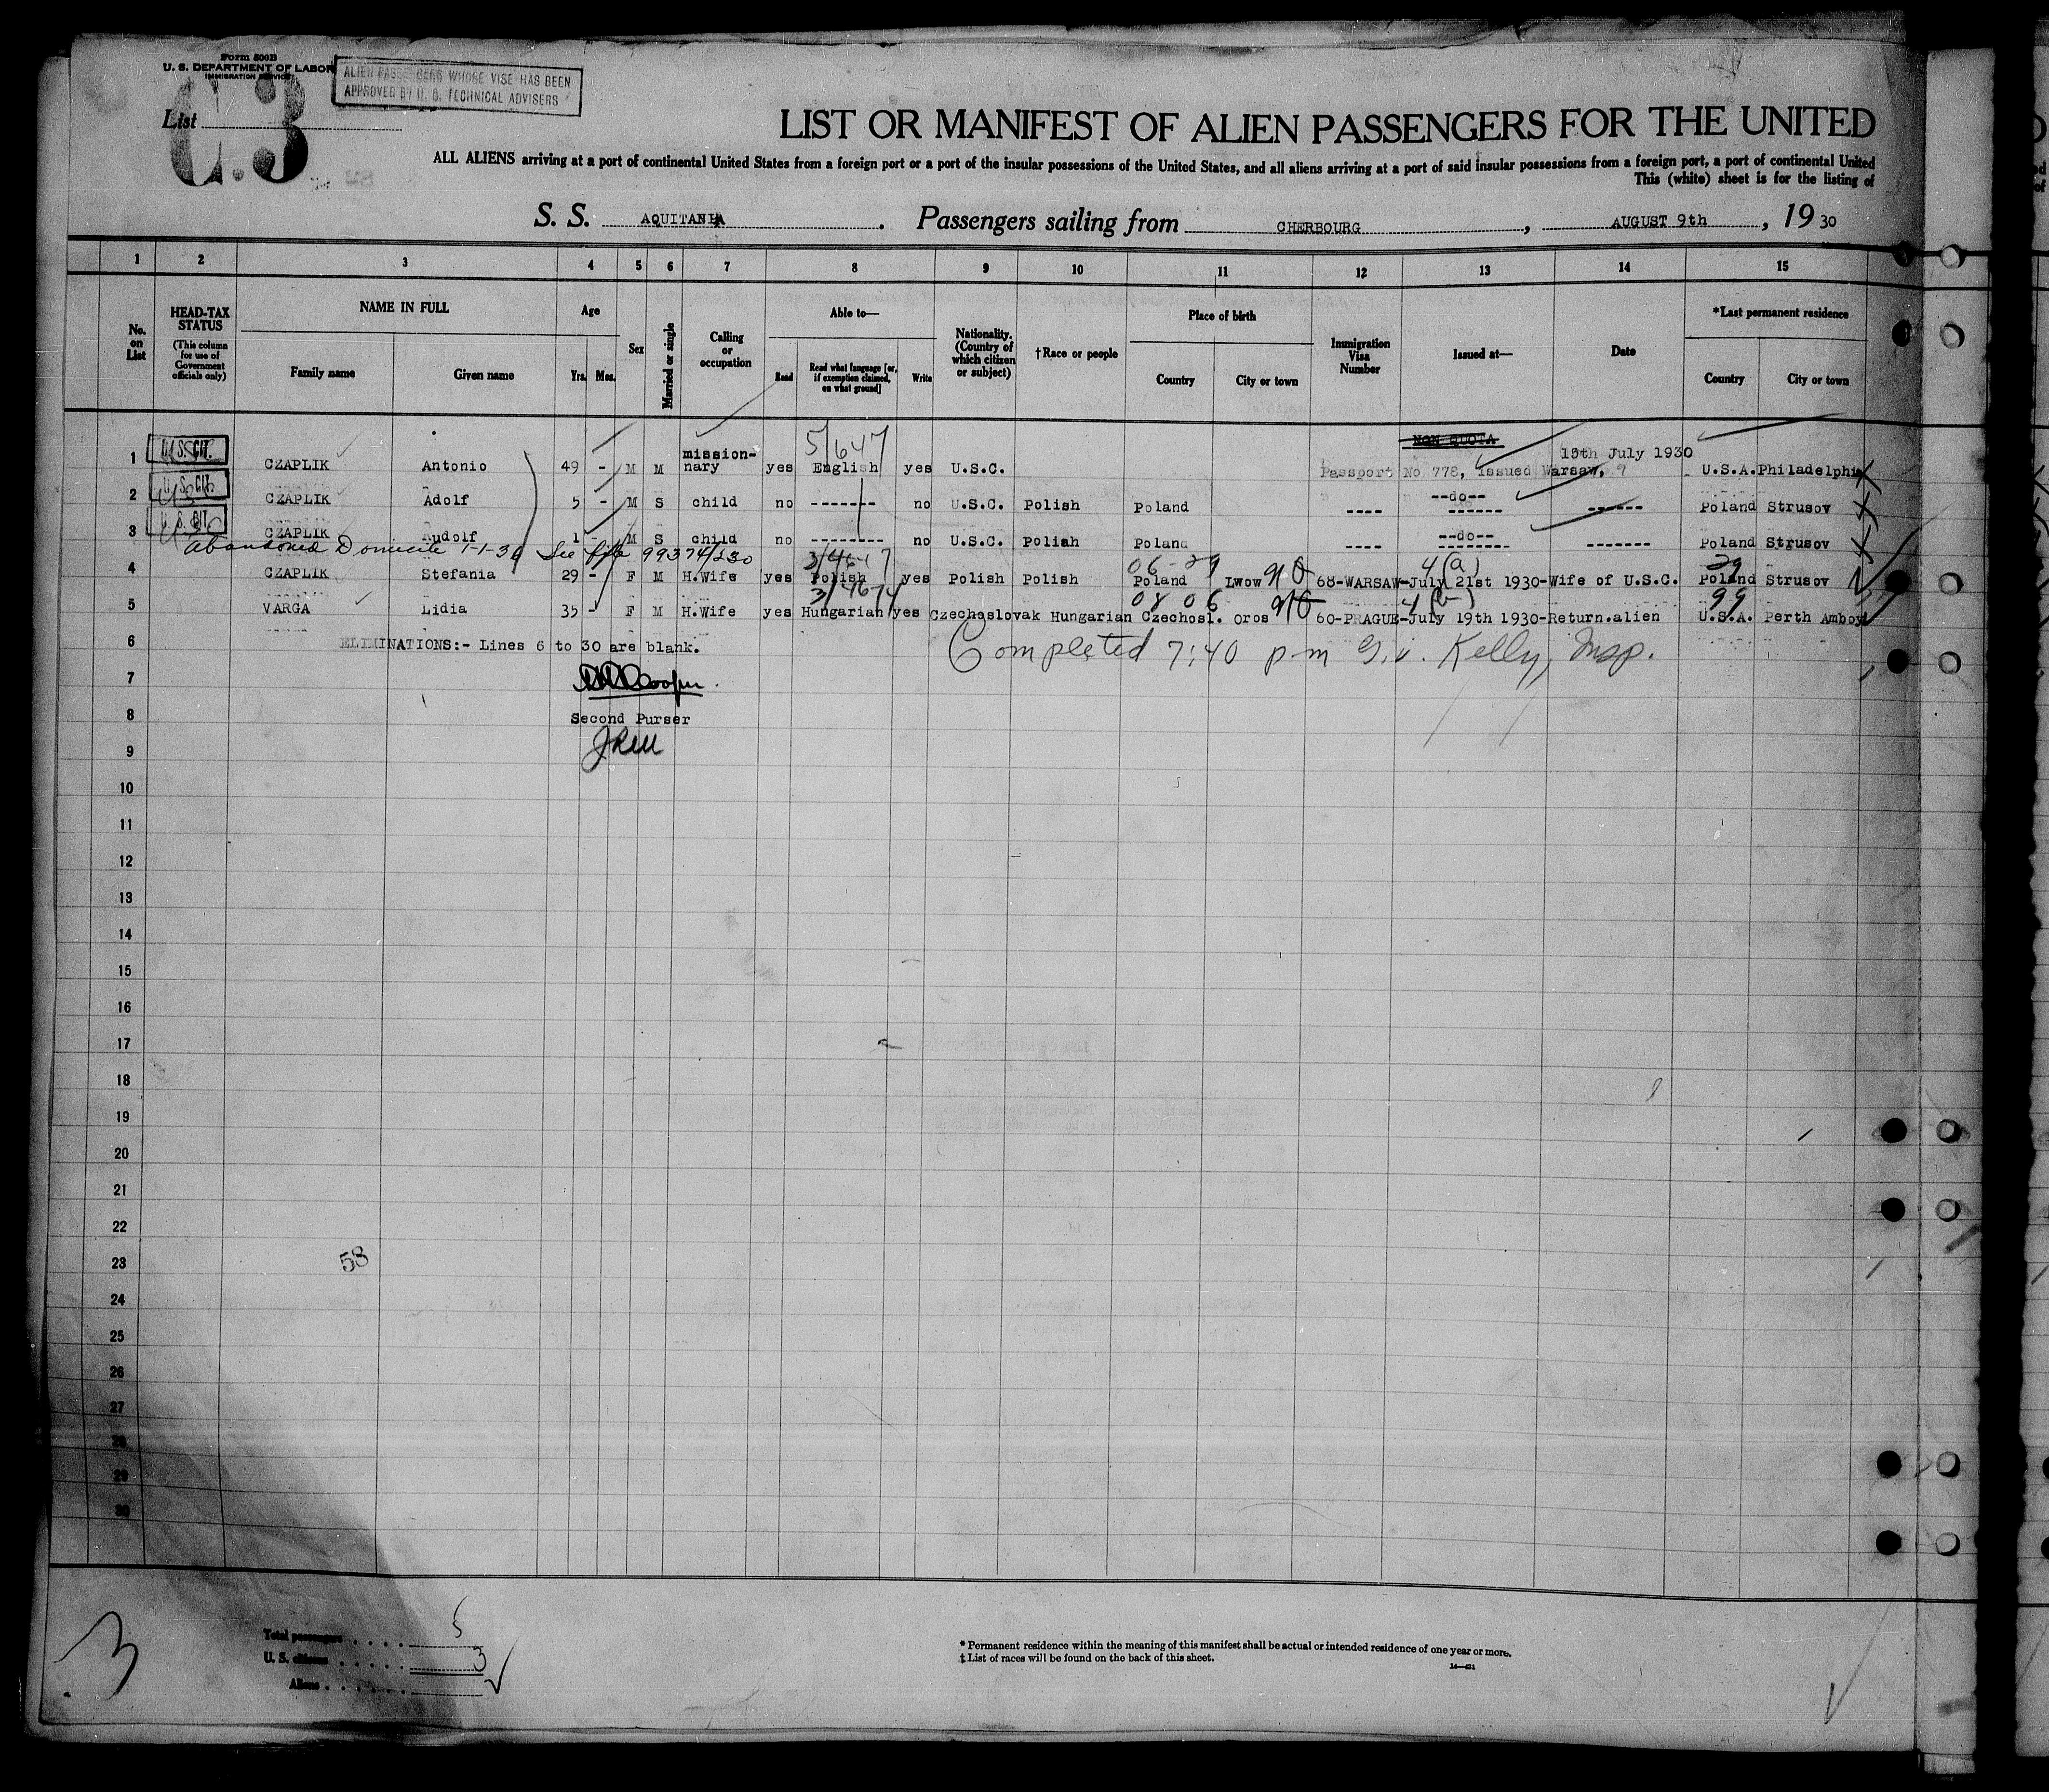 Form 500B
U. S. DEPARTMENT OF LABOR
IMMIGRATION SERVICE
ALIEN PASSENGERS WHOSE VISE HAS BEEN
APPROVED BY U. S. TECHNICAL ADVISERS
List
C.3
LIST OR MANIFEST OF ALIEN PASSENGERS FOR THE UNITED
ALL ALIENS arriving at a port of continental United States from a foreign port or a port of the insular possessions of the United States, and all aliens arriving at a port of said insular possessions from a foreign port, a port of continental United
This (white) sheet is for the listing of
S. S. AQUITANIA . Passengers sailing from CHERBOURG , AUGUST 9th , 19 30
1 2 3 4 5 6 7 8 9 10 11 12 13 14 15
No. on List
HEAD-TAX STATUS (This column for use of Government officials only)
NAME IN FULL
Family name Given name
Age
Yrs. Mos.
Sex
Married or single
Calling or occupation
Able to—
Read Read what language [or, if exemption claimed, on what ground] Write
Nationality. (Country of which citizen or subject)
†Race or people
Place of birth
Country City or town
Immigration Visa Number
Issued at—
Date
*Last permanent residence
Country City or town
5/647 NON QUOTA
1 U.S. CIT. CZAPLIK Antonio 49 - M M mission-nary yes English yes U.S.C. Passport No 778, issued Warsaw, July 1930 U.S.A. Philadelphia
2 U.S. CIT. CZAPLIK Adolf 5 - M S child no -------- no U.S.C. Polish Poland ---- --do-- ------ Poland Strusov
3 U.S. CIT. CZAPLIK Rudolf 1 - M S child no --------- no U.S.C. Polish Poland ---- --do-- ------- Poland Strusov
Abandoned Domicile 1-1-30 See file 99374/230
06-29 4(a) 29
4 CZAPLIK Stefania 29 - F M H.Wife yes Polish yes Polish Polish Poland Lwow 68-WARSAW-July 21st 1930-Wife of U.S.C. Poland Strusov
0806 4(b) 99
5 VARGA Lidia 35 - F M H.Wife yes Hungarian yes Czechoslovak Hungarian Czechosl. Oros 60-PRAGUE-July 19th 1930-Return.alien U.S.A. Perth Amboy
6 ELIMINATIONS:- Lines 6 to 30 are blank. Completed 7:40 pm Kelly, Insp.
7 Cooper
8 Second Purser
9
10
11
12
13
14
15
16
17
18
19
20
21
22
23 58
24
25
26
27
28
29
30
3
Total passengers . . . . 5
U. S. citizens . . . . . 3
Aliens . . . . . .
* Permanent residence within the meaning of this manifest shall be actual or intended residence of one year or more.
† List of races will be found on the back of this sheet.